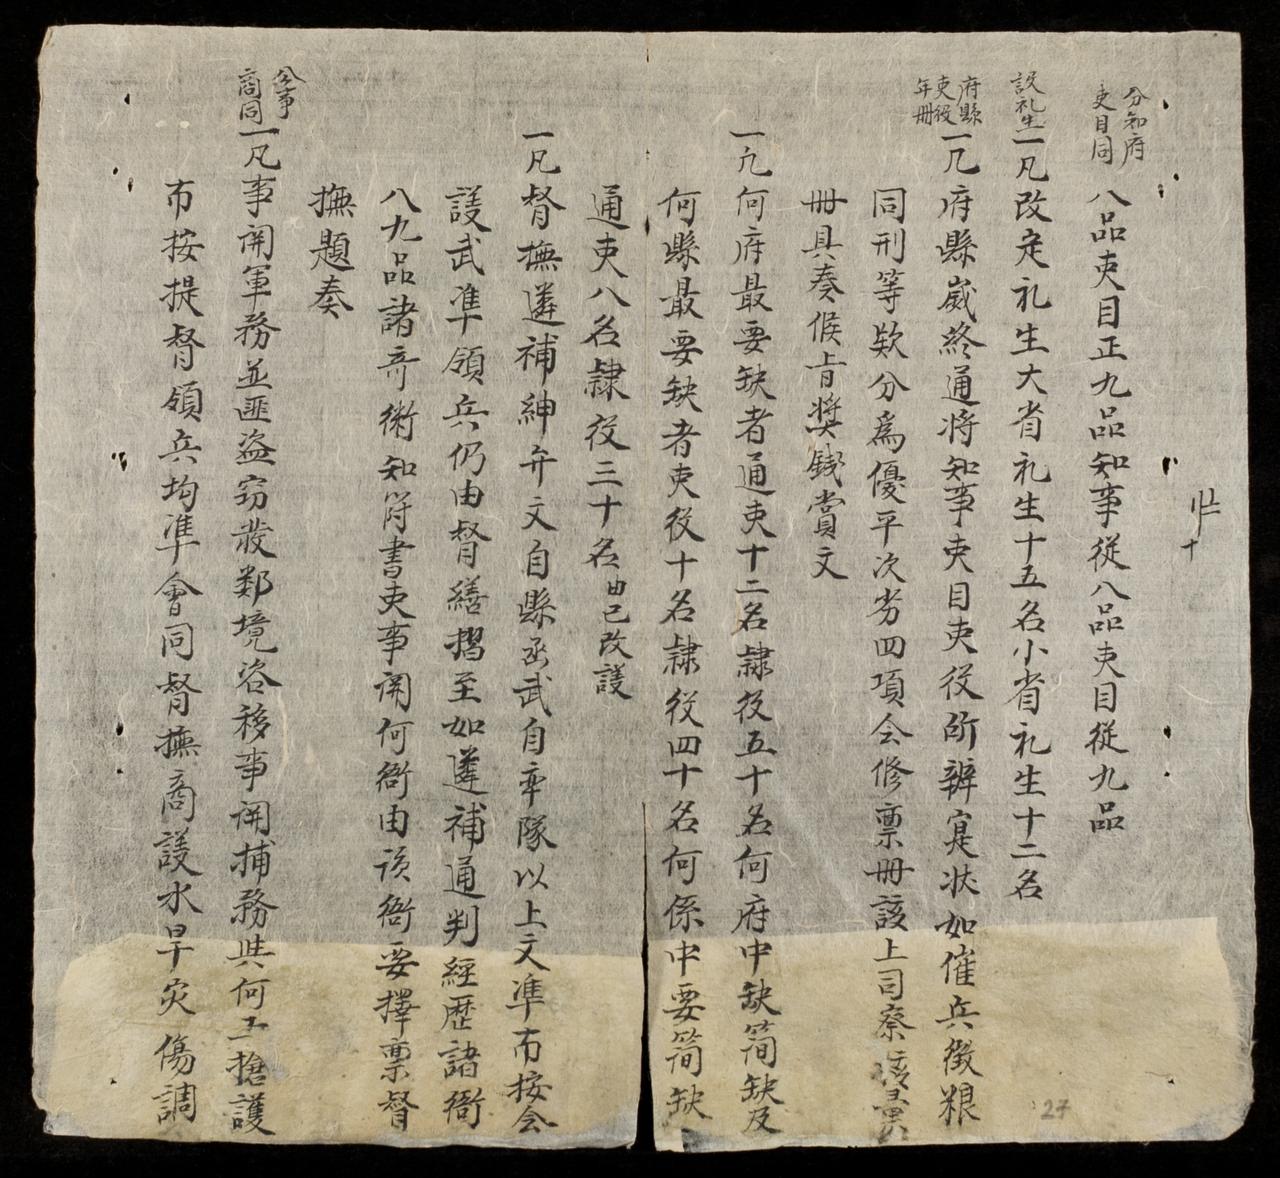 分知府
吏目同
八品吏目正九品知事従八品吏目従九品
設礼生
一凡改定礼生大省礼生十五名小省礼生十二名
府縣
吏役
年冊
一凡府縣歲終通将知事吏目吏役所辨寔状如催兵徵粮
同刑等欵分為優平次劣四項会修稟冊該上司察
冊具奏候旨奨錢賞文
一凢何府最要缺者通吏十二名隷役五十名何府中缺簡缺及
何縣最要缺者吏役十名隷役四十名何係中要簡缺
通吏八名隷役三十名由已改護
一凡督撫遴補紳弁文自縣丞武自率隊以上文準布按会
護武準領兵仍由督繕摺至如遴補通判經歴諸衙
八九品諸竒術知符書吏事関何衙由该衙要擇稟督
撫題奏
公事
商同
一凡事関軍務並匪盗窃發鄰境咨移事関捕務與何工搶護
布按提督領兵均準會同督撫商護水旱灾傷調
十
27